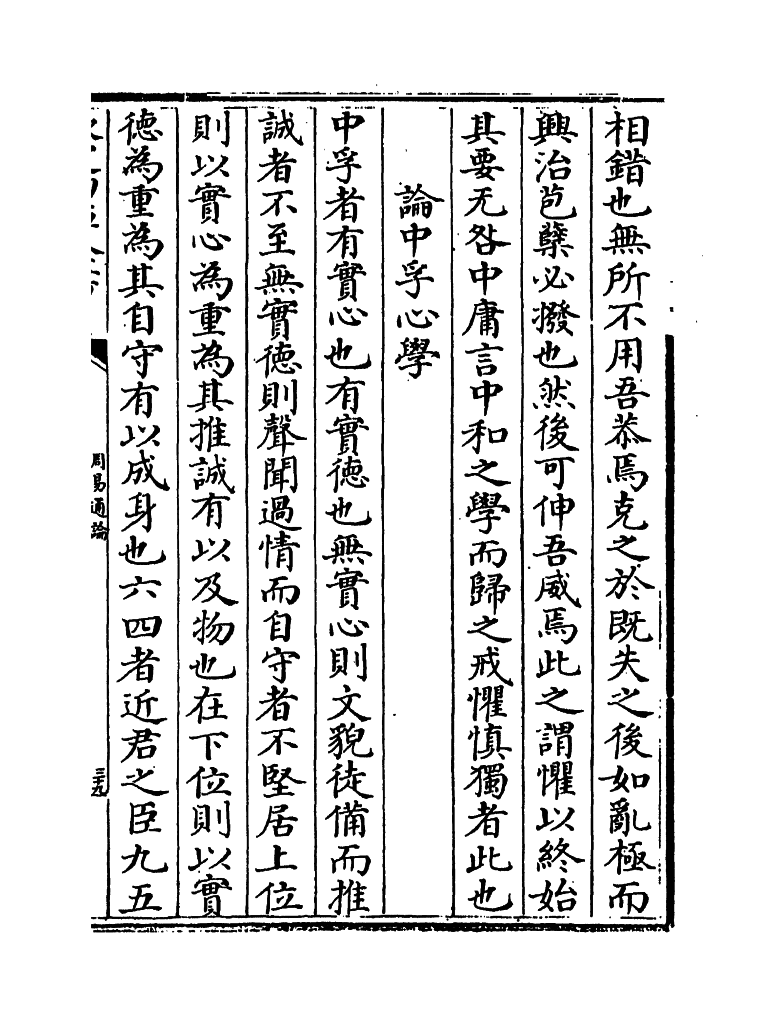 相錯也無所不用吾恭焉克之於既失之後如亂極而
興治苞櫱必撥也然後可伸吾威焉此之謂懼以終始
其要无咎中庸言中和之學而歸之戒懼慎獨者此也
論中孚心學
中孚者有實心也有實德也無實心則文貌徒備而推
誠者不至無實德則聲聞過情而自守者不堅居上位
則以實心為重為其推誠有以及物也在下位則以實
德為重為其自守有以成身也六四者近君之臣九五
周易通論
三十九